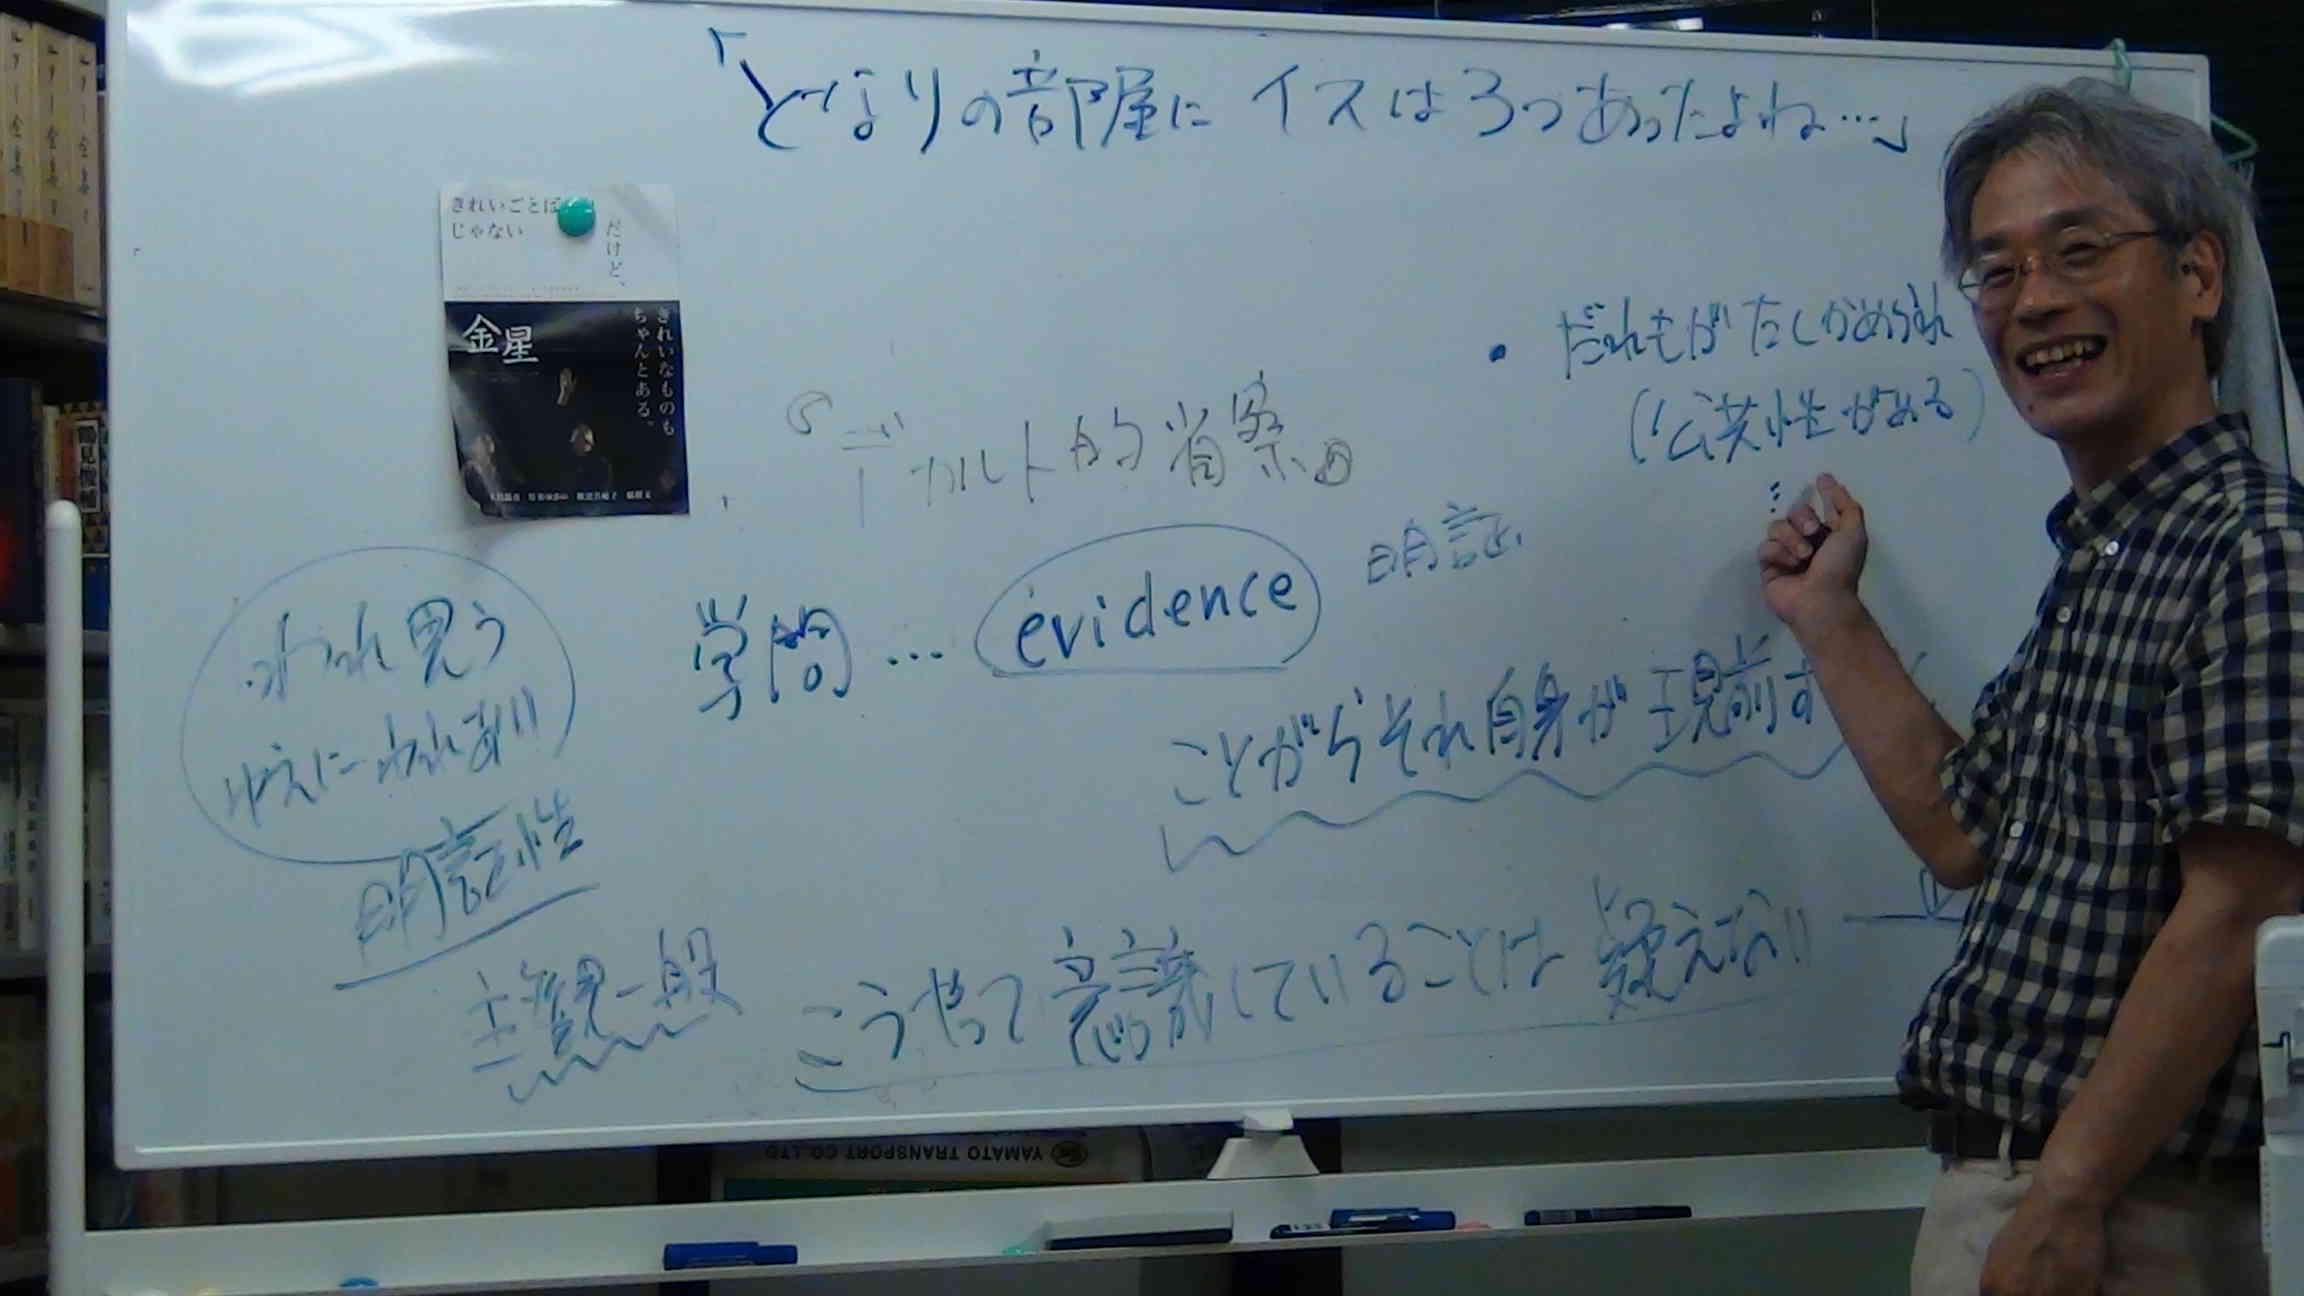 「となりの部屋にイスは3つあったよね…」
きれいごとば
じゃない
だけど、
きれいなものも
ちゃんとある。
金星
・だれもがたしかめられ
(公共性がある)
『デカルト的省察』
学問… évidence 明証
われ思う
ゆえにわれあり
明証性
ことがらそれ自身が現前す
主観一般
こうやって意識していることは疑えない
YAMATO TRANSPORT CO.,LTD.